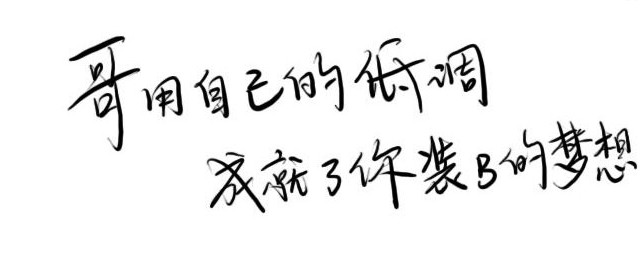 哥用自己的低调
成就了你装B的梦想